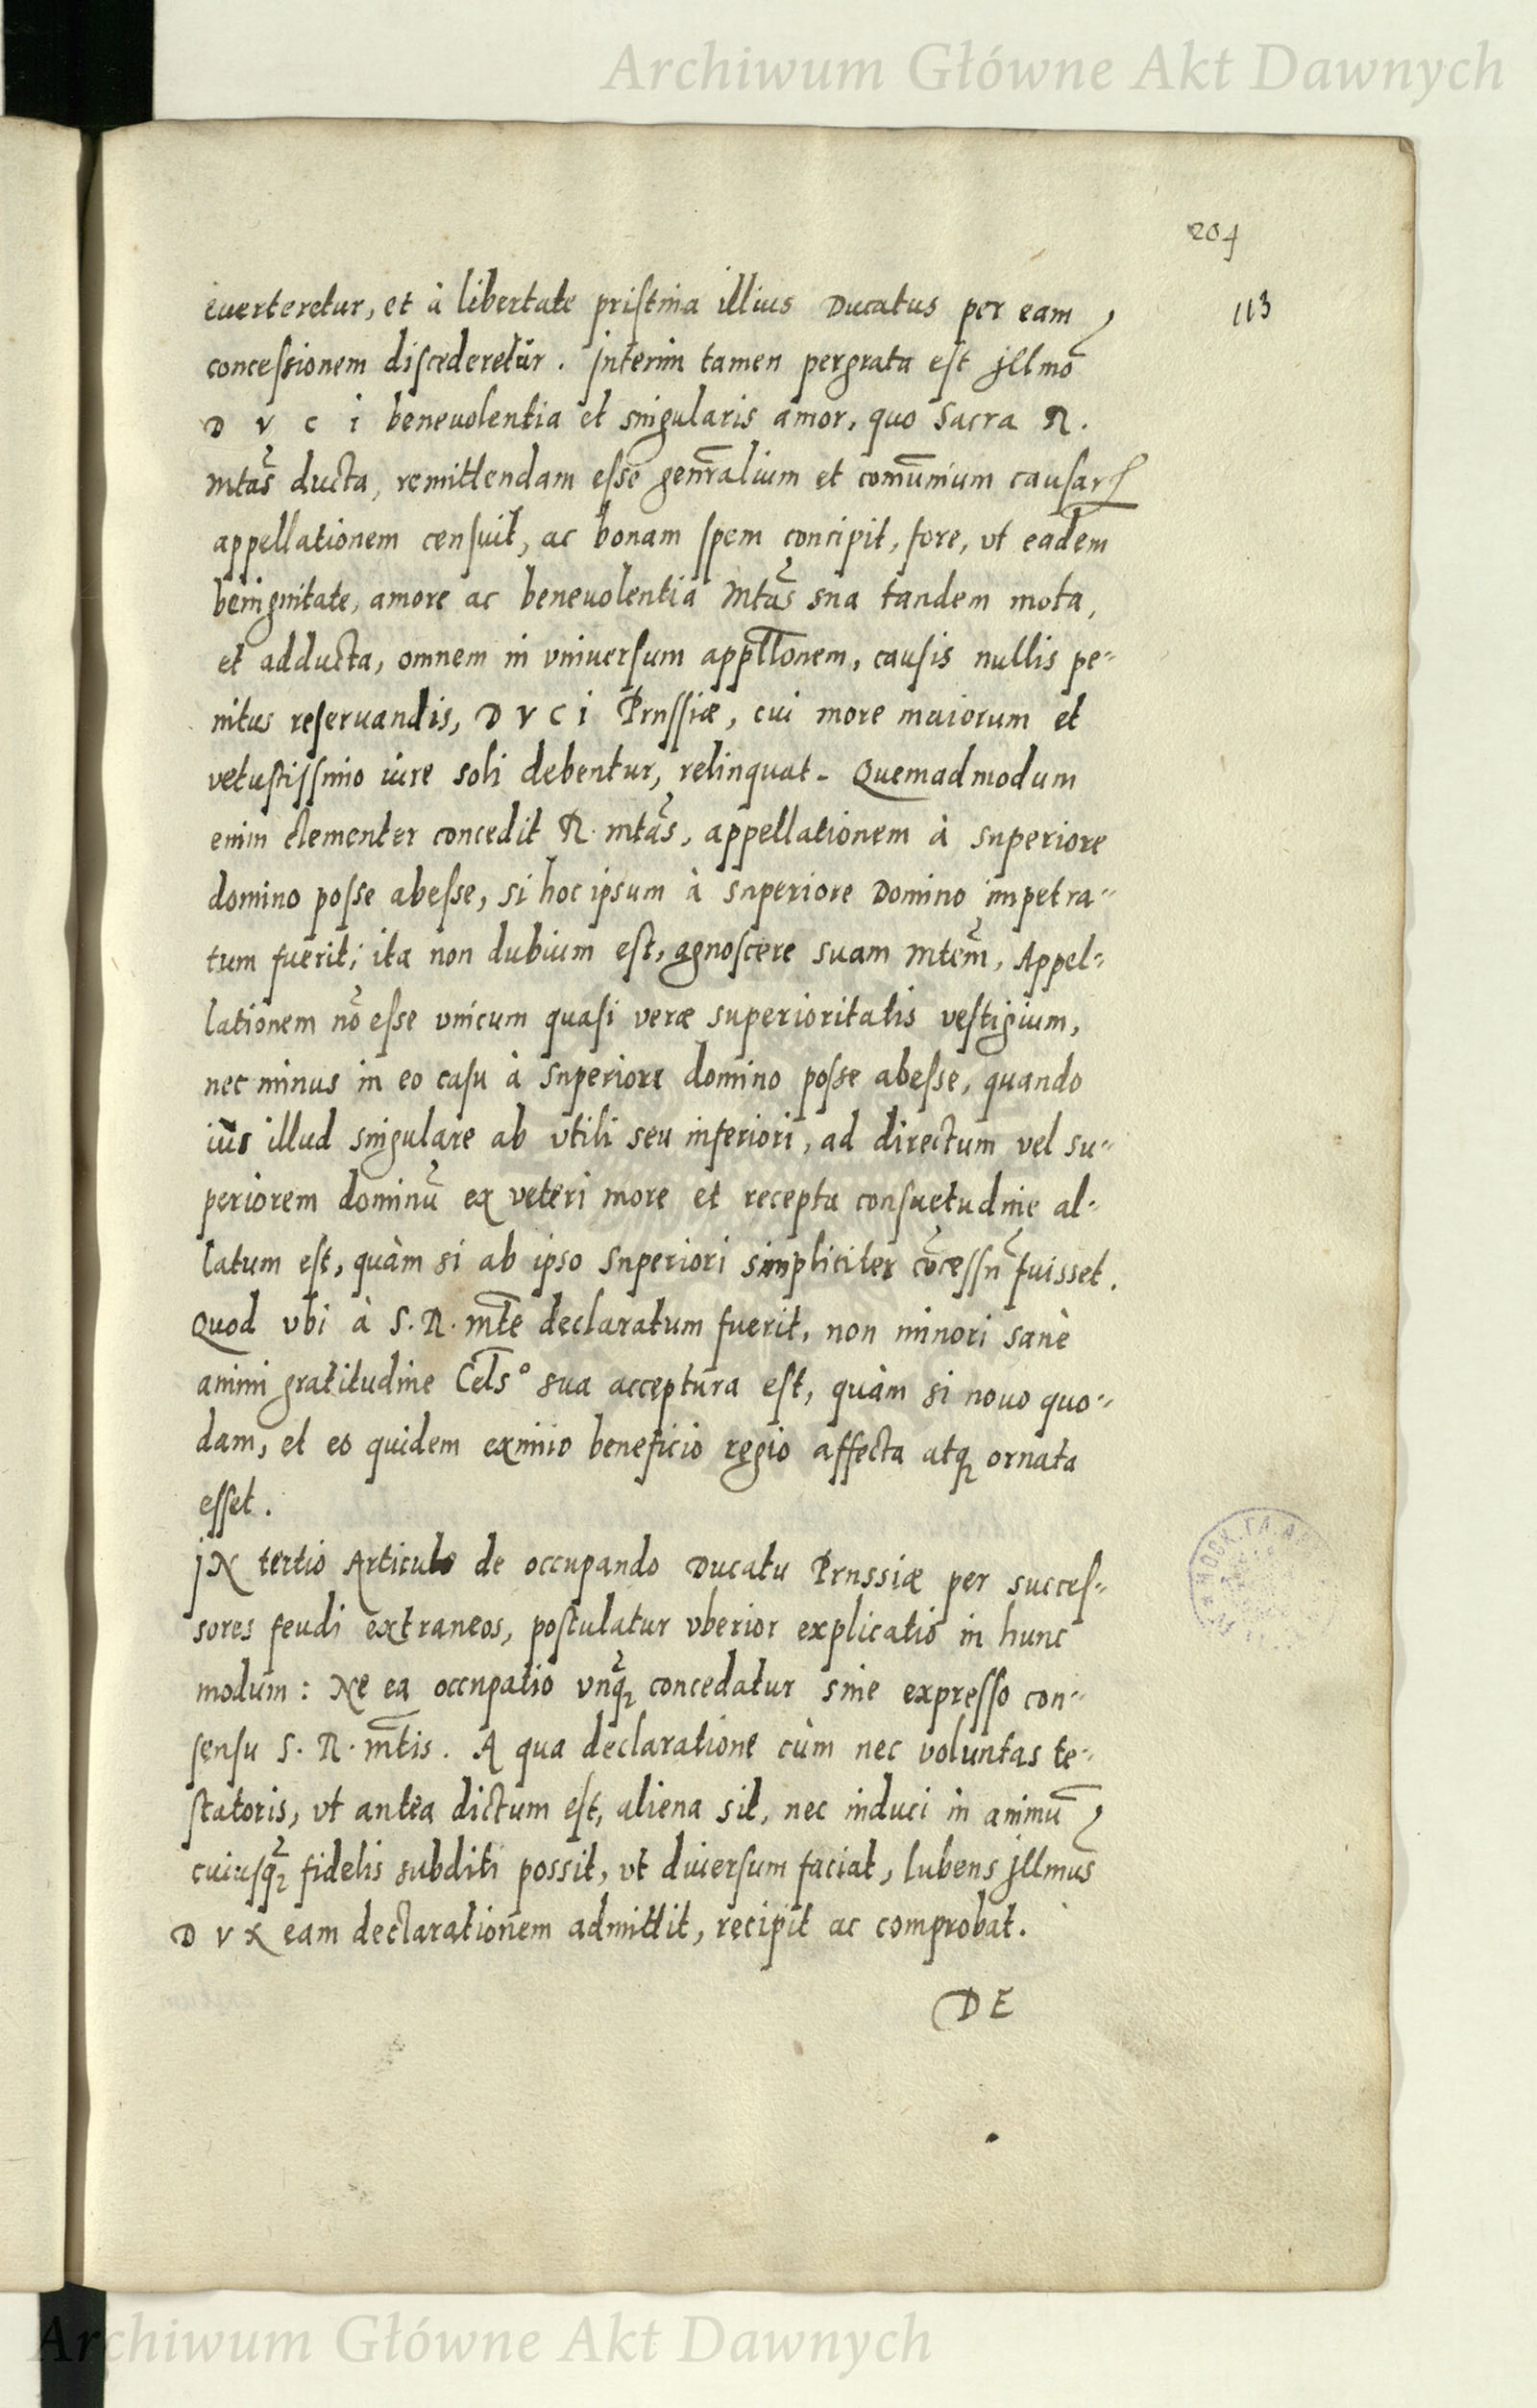 Archiwum Główne Akt Dawnych
204
113
euerteretur, et à libertate pristina illius Ducatus per eam
concessionem discederetur. Interim tamen pergrata est jllmo
D V C I beneuolentia et singularis amor, quo Sacra R.
Mtas̃ ducta, remittendam esse geñralium et com̃unium causar
appellationem censuit, ac bonam spem concipit, fore, vt eadem
benignitate, amore ac beneuolentia Mtas̃ sua tandem mota,
et adducta, omnem in vniuersum appl̃lonem, causis nullis pe-
nitus reseruandis, D V C I Prussiæ, cui more maiorum et
vetustissimo iure soli debentur, relinquat. Quemadmodum
enim clementer concedit R. mtas̃, appellationem à superiore
domino posse abesse, si hoc ipsum à superiore Domino impetra-
tum fuerit; ita non dubium est, agnoscere suam Mtem̃, Appel-
lationem nõ esse vnicum quasi veræ superioritatis vestigium,
nec minus in eo casu à superiore domino posse abesse, quando
ius illud singulare ab vtili seu inferiori, ad directum vel su-
periorem dominũ ex veteri more et recepta consuetudine al-
latum est, quàm si ab ipso Superiori simpliciter cõcessũ fuisset.
Quod vbi à S. R. mt̃e declaratum fuerit, non minori sanè
animi gratitudine Cels̃° sua acceptura est, quàm si nouo quo-
dam, et eo quidem eximio beneficio regio affecta atq; ornata
esset.
IN tertio Articulo de occupando Ducatu Prussiæ per succes-
sores feudi extraneos, postulatur vberior explicatio in hunc
modum: Ne ea occupatio vnq̃; concedatur sine expresso con-
sensu S. R. mt̃is. A qua declaratione cùm nec voluntas te-
statoris, vt antea dictum est, aliena sit, nec induci in animũ
cuiusq̃; fidelis subditi possit, vt diuersum faciat, lubens jllmus
D V X eam declarationem admittit, recipit ac comprobat.
DE
Archiwum Główne Akt Dawnych